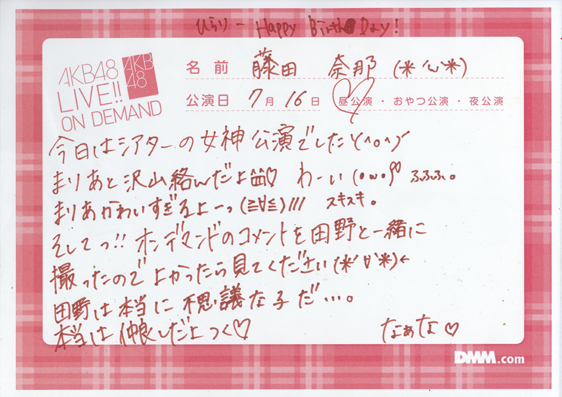 ひらりー Happy Birth Day!
AKB48
LIVE!!
ON DEMAND
AKB
48
名前 藤田 奈那 (*´ω`*)
公演日 7月16日 昼公演・おやつ公演・夜公演
今日はシアターの女神公演でしたよ^o^)/
まりあと沢山絡んだよ♡ わーい (・ω・)♡ ふふふ。
まりあかわいすぎるよーっ (≧∀≦)/// スキスキ。
そしてっ!! オンデマンドのコメントを田野と一緒に
撮ったのでよかったら見てください(*´∀`*)←
田野は本当に不思議な子だ…。
本当は仲良しだよっ♡ なぁな♡
DMM.com